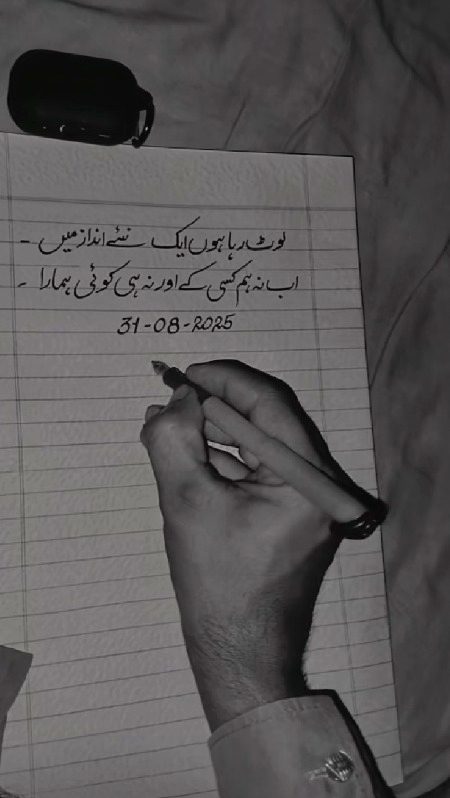 لوٹ رہا ہوں ایک نئے انداز میں ۔
اب نہ ہم کسی کے اور نہ ہی کوئی ہمارا ۔
31-08-2025